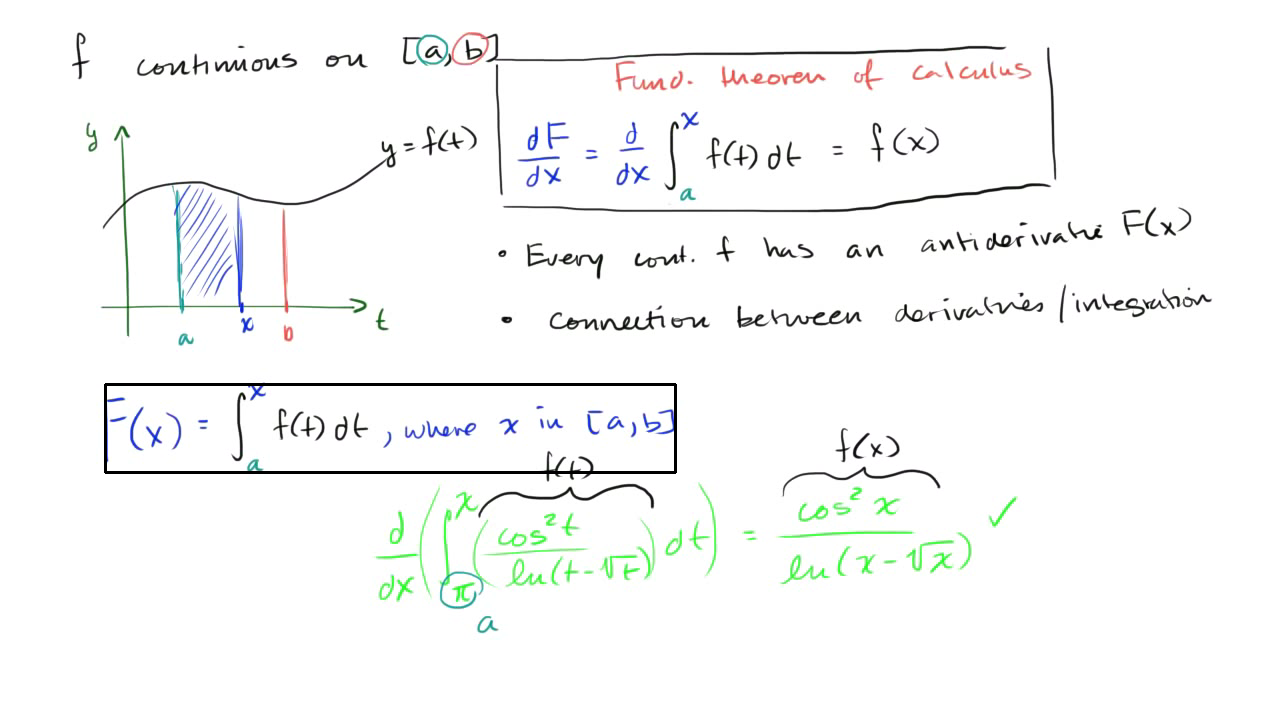 f continuous on [a, b]
Fund. theorem of calculus
dF/dx = d/dx ∫_a^x f(t) dt = f(x)
y
y = f(t)
a x b t
• Every cont. f has an antiderivative F(x)
• connection between derivatives / integration
F(x) = ∫_a^x f(t) dt, where x in [a, b]
f(t) f(x)
d/dx (∫_π^x (cos² t / ln(t - √t)) dt) = cos² x / ln(x - √x) ✓
a